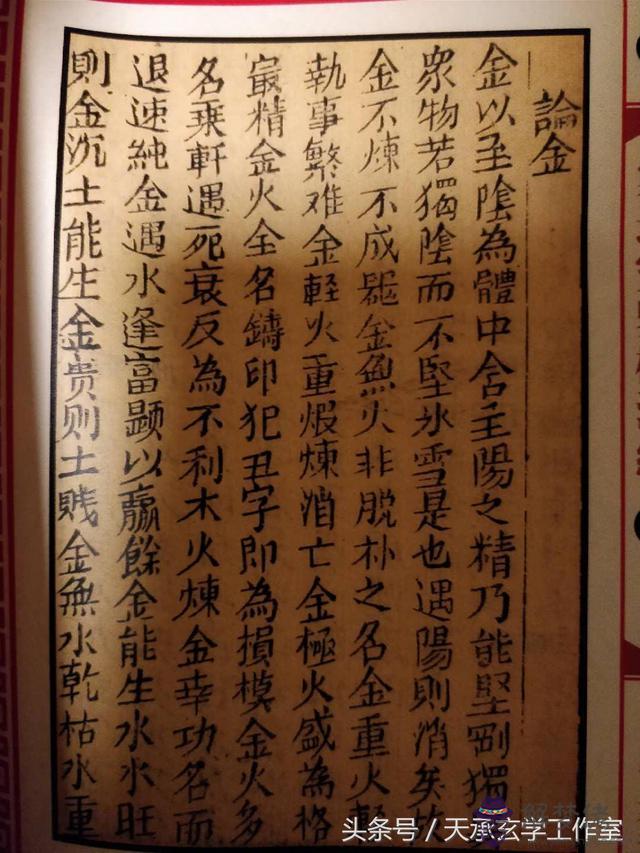 論金
金以至陰為體中含至陽之精乃能堅剛獨
衆物若獨陰而不堅冰雪是也遇陽則消矣故
金不煉不成器金無火非脱朴之名金重火輕
執事繁难金輕火重煆煉消亡金極火盛為格
最精金火全名鑄印犯丑字即為損模金火多
名乘軒遇死衰反為不利木火煉金幸功名而
退速純金遇水逢富顕以贏餘金能生水水旺
則金沉土能生金贵则土賤金無水乾枯水重
头条号／天承玄学工作室